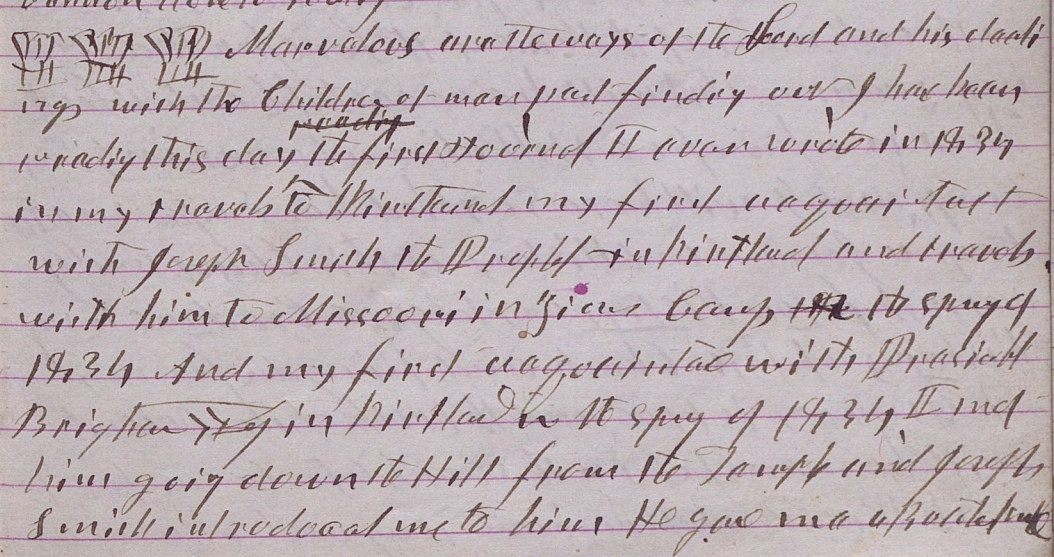 Marvelous are the ways of the Lord and his deali
ngs with the Children of man past findig out I have been
readig
readig this day the first Journal I ever wrote in 1834
in my travels to Kirtland my first acquaintace
with Joseph Smith the Prophet in Kirtland and travels
with him to Missouri in Zions Camp the spring of
1834 And my first acquaintace with Presidet
Brigham Young in Kirtland in the sprig of 1834 I met
him goig down the Hill from the Temple and Joseph
Smith introduced me to him He gave me a